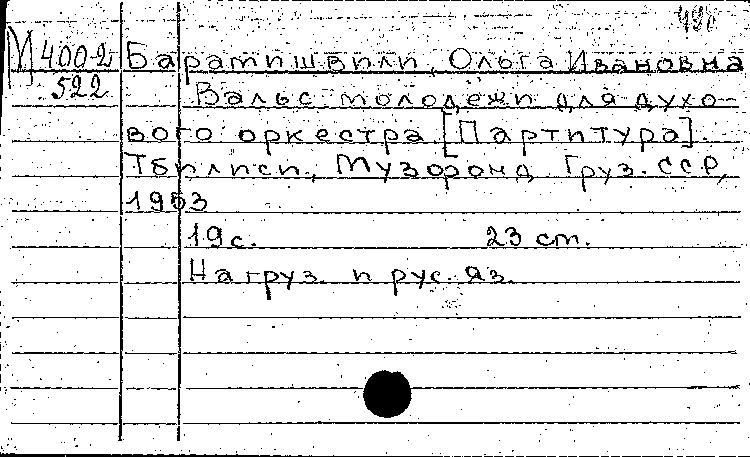 М 400-2
522
Баратишвили, Ольга Ивановна
Вальс молодёжи для духо-
вого оркестра [Партитура].
Тбилиси, Музфонд Груз. ССР,
1953
19 с. 23 см.
На груз. и рус. яз.